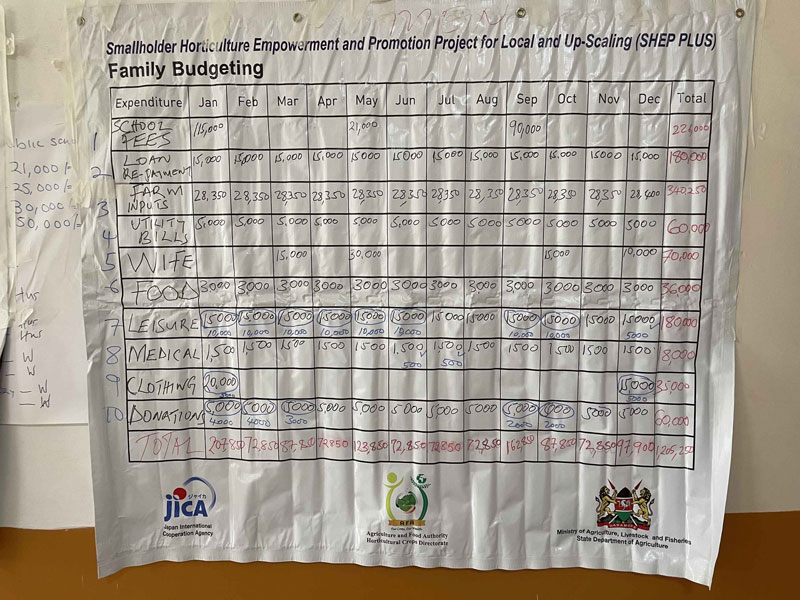 Smallholder Horticulture Empowerment and Promotion Project for Local and Up-Scaling (SHEP PLUS)
Family Budgeting
Expenditure Jan Feb Mar Apr May Jun Jul Aug Sep Oct Nov Dec Total
1 SCHOOL FEES 115,000 21,000 90,000
2 LOAN RE-PAIMENT 15,000 15,000 15,000 15,000 15000 15000 15000 15,000 15,000 15,000 15000 15,000 180,000
3 FARM INPUTS 28,350 28,350 28350 28,350 28,350 28,350 28350 28,350 28,350 28,350 28,350 28,400 340250
4 UTILITY BILLS 5,000 5,000 5,000 5,000 5000 5,000 5000 5000 5000 5000 5000 5000 60,000
5 WIFE 15,000 30,000 15,000 10,000 70,000
6 FOOD 3000 3,000 3000 3000 3000 3000 3000 3,000 3,000 3000 3000 3000 36,000
7 LEISURE 15000 15000 15000 15000 15000 15000 15000 15000 15000 15000 15000 15000 180000
10,000 10,000 10,000 10,000 10,000 10,000 10,000 10,000 5000
8 MEDICAL 1,500 1,500 1500 1500 1500 1,500 1500 1500 1500 1500 1500 1500 18,000
500 500
9 CLOTHING 20,000 15000 35,000
5000
10 DONATIONS 5,000 5000 5000 5,000 5,000 5000 5000 5000 5,000 5000 5000 5000 60,000
4000 4000 3000 2000 2000
TOTAL 207,850 72,850 87,850 72850 123,850 72,850 72850 72,850 162,850 87,850 72,850 97,900 1,205,250
21,000/-
25,000/-
30,000/-
50,000/-
W
W
W
W
ジャイカ
JICA
Japan International
Cooperation Agency
AFA
Agriculture and Food Authority
Horticultural Crops Directorate
HARAMBEE
Ministry of Agriculture, Livestock and Fisheries
State Department of Agriculture